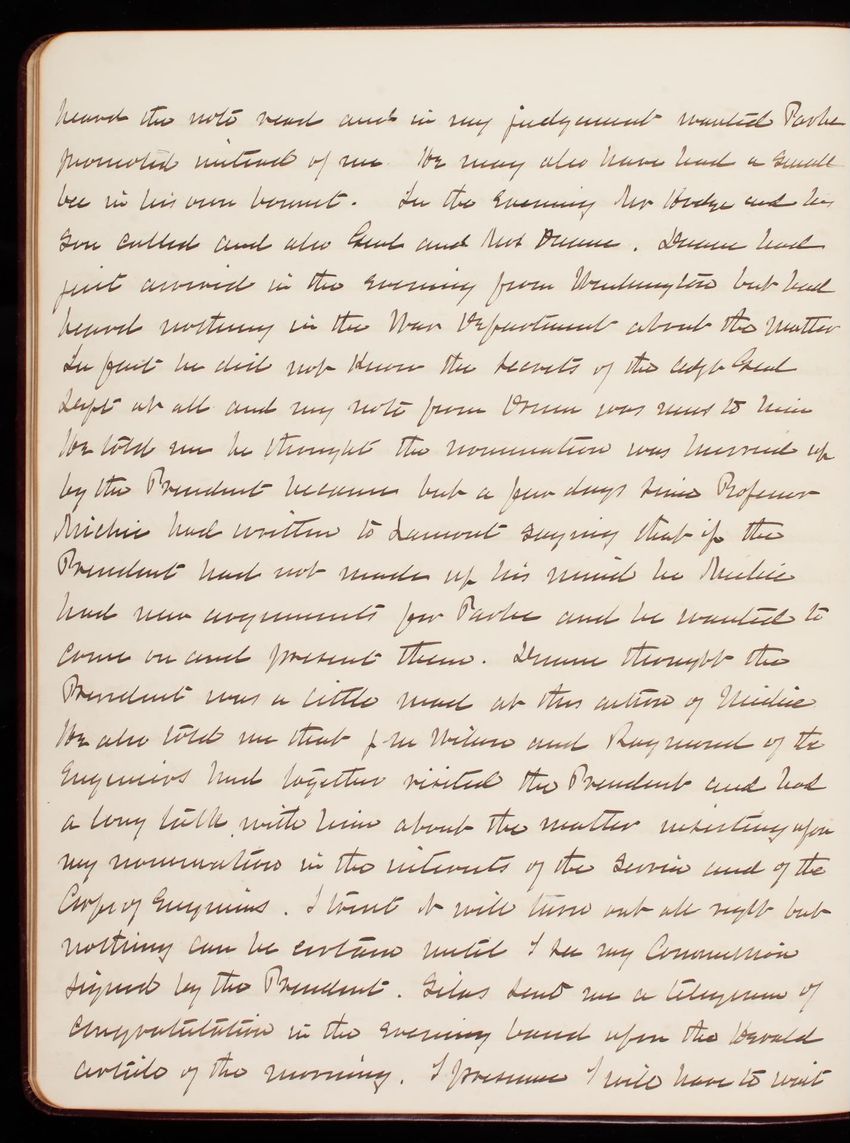 heard the note read and in my judgement wanted Parke
promoted instead of me. He may also have had a small
bee in his own bonnet. In the Evening Mr Hodge and his
son called and also Genl and Mrs Duane. Duane had
just arrived in the evening from Washington but had
heard nothing in the War Department about the matter
In fact he did not know the secrets of the Adjt Genl
Dept at all and my note from Drum was news to him
He told me he thought the nomination was hurried up
by the President because but a few days since Professor
Michie had written to Lamont saying that if the
President had not made up his mind he Michie
had new arguments for Parke and he wanted to
come on and present them. Duane thought the
President was a little mad at this action of Michie
He also told me that Wilson and Raymond of the
Engineers had together visited the President and had
a long talk with him about the matter insisting upon
my nomination in the interests of the Service and of the
Corps of Engineers. I trust it will turn out all right but
nothing can be certain until I see my Commission
signed by the President. Silas sent me a telegram of
congratulation in the evening based upon the Herald
article of the morning. I presume I will have to wait